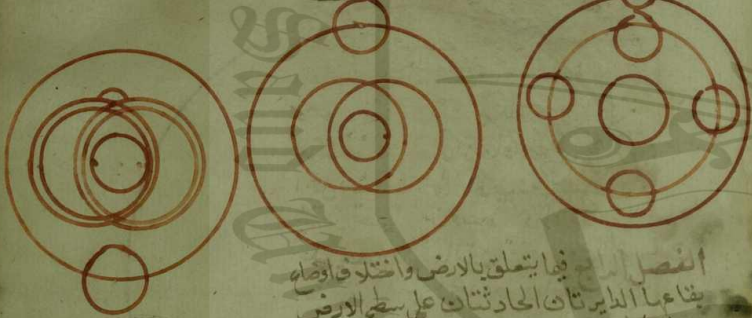 الفصل الرابع فيما يتعلق بالارض واختلاف اوضاع
بقاعها الدايرتان الحادثتان على سطح الارض